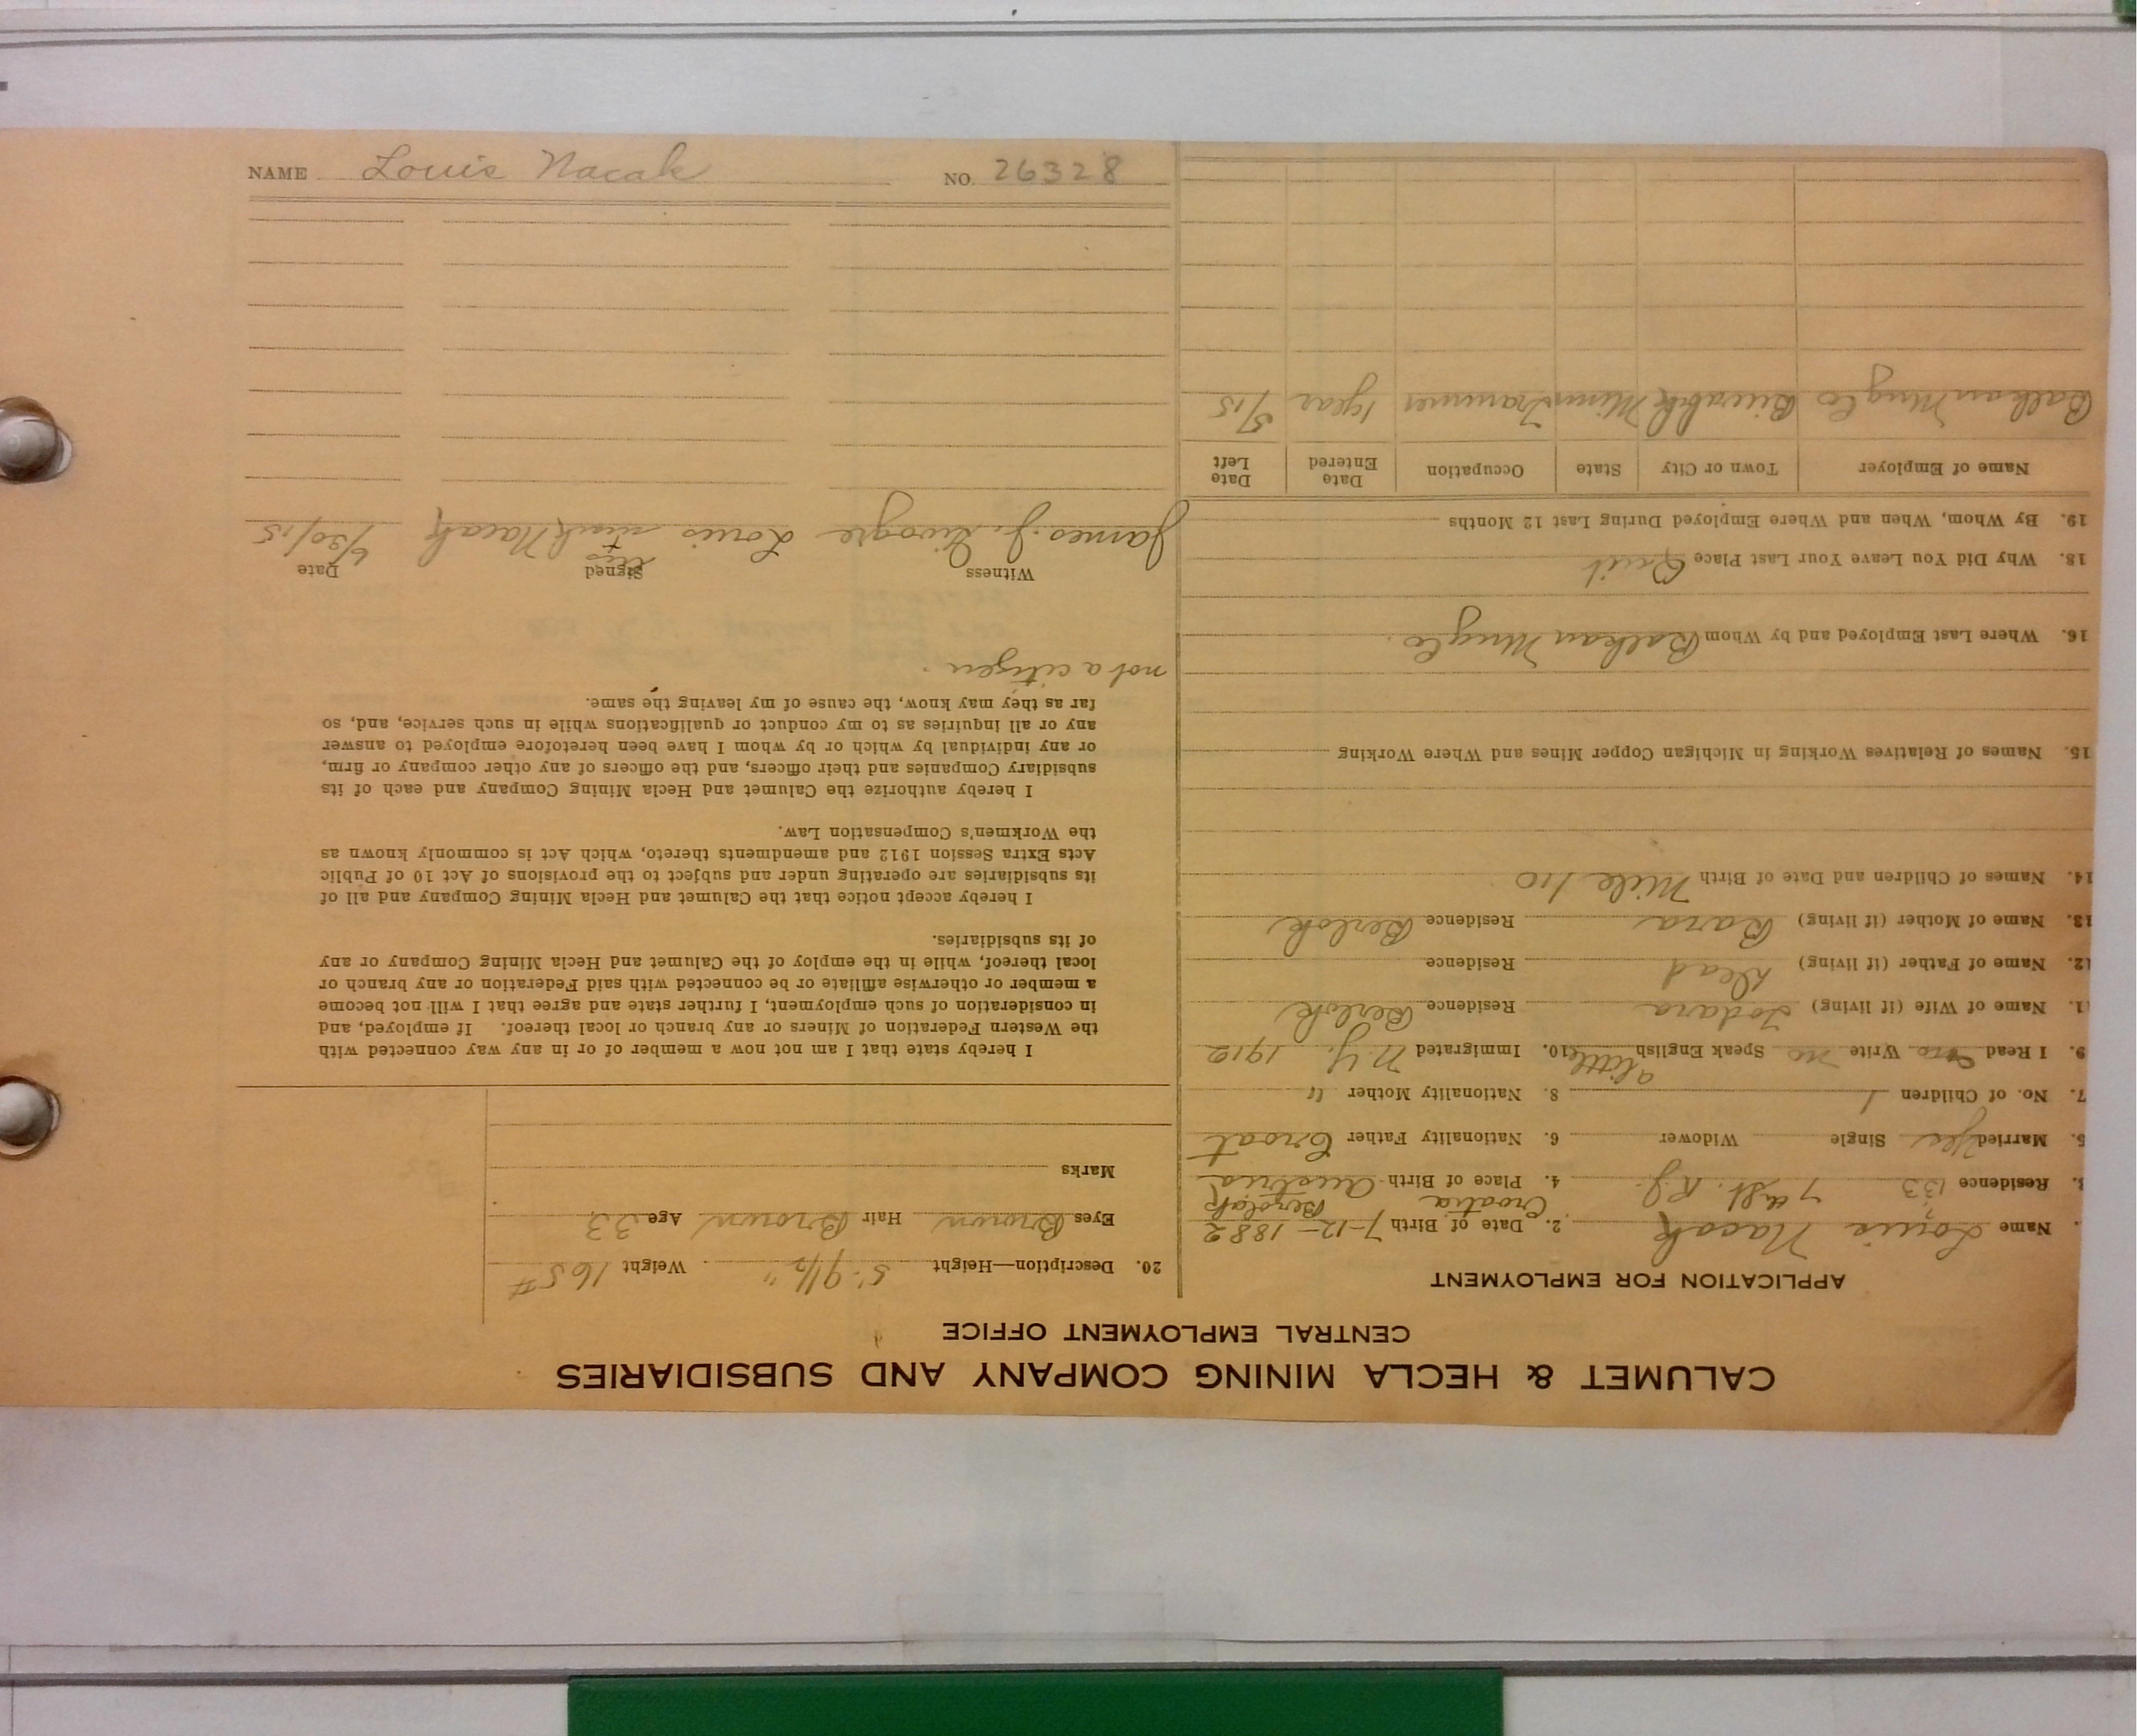 NAME Louis Nacak NO. 26328
CALUMET & HECLA MINING COMPANY AND SUBSIDIARIES
CENTRAL EMPLOYMENT OFFICE
APPLICATION FOR EMPLOYMENT
. Name Louis Nacak 2. Date of Birth 7-12-1882
Croatia
3. Residence 133 7th St. R.J. 4. Place of Birth Austria
5. Married Yes Single Widower 6. Nationality Father Croat
7. No. of Children 1 8. Nationality Mother "
9. I Read no Write no Speak English a little 10. Immigrated N.Y. 1912
11. Name of Wife (if living) Todara Residence Berlok
12. Name of Father (if living) Dead Residence
13. Name of Mother (if living) Bara Residence Berlok
14. Names of Children and Date of Birth Mile 1/10
15. Names of Relatives Working in Michigan Copper Mines and Where Working
16. Where Last Employed and by Whom Balkan Mng Co.
18. Why Did You Leave Your Last Place Quit
19. By Whom, When and Where Employed During Last 12 Months
Name of Employer Town or City State Occupation Date Entered Date Left
Balkan Mng Co Biwabik Minn Trammer 1 year 5/15
20. Description—Height 5' 9 1/2" Weight 165#
Eyes Brown Hair Brown Age 33
Marks
I hereby state that I am not now a member of or in any way connected with
the Western Federation of Miners or any branch or local thereof. If employed, and
in consideration of such employment, I further state and agree that I will not become
a member or otherwise affiliate or be connected with said Federation or any branch or
local thereof, while in the employ of the Calumet and Hecla Mining Company or any
of its subsidiaries.
I hereby accept notice that the Calumet and Hecla Mining Company and all of
its subsidiaries are operating under and subject to the provisions of Act 10 of Public
Acts Extra Session 1912 and amendments thereto, which Act is commonly known as
the Workmen's Compensation Law.
I hereby authorize the Calumet and Hecla Mining Company and each of its
subsidiary Companies and their officers, and the officers of any other company or firm,
or any individual by which or by whom I have been heretofore employed to answer
any or all inquiries as to my conduct or qualifications while in such service, and, so
far as they may know, the cause of my leaving the same.
not a citizen.
Witness Signed Date
his
James J. Louis + mark Nacak 6/30/15